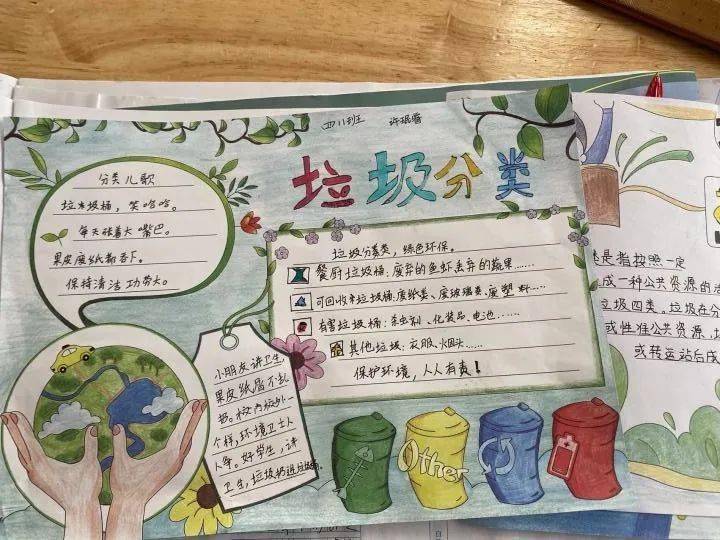 四八班
垃圾分类
分类儿歌
垃圾桶，笑哈哈。
每天张着大嘴巴。
果皮废纸都吞下。
保持清洁功劳大。
垃圾分类，绿色环保。
餐厨垃圾桶：废弃的鱼虾丢弃的蔬果……
可回收垃圾桶：废纸类、废玻璃类、废塑料……
有害垃圾桶：杀虫剂、化妆品、电池……
其他垃圾：衣服、烟头……
保护环境，人人有责！
小朋友讲卫生，
果皮纸屑不乱
扔。校内校外一
个样，环境卫士人
人夸。好学生，讲
卫生，垃圾扔进垃圾桶。
Other
是指按照一定
成一种公共资源的
垃圾四类。垃圾在分
或准公共资源，
或转运站后